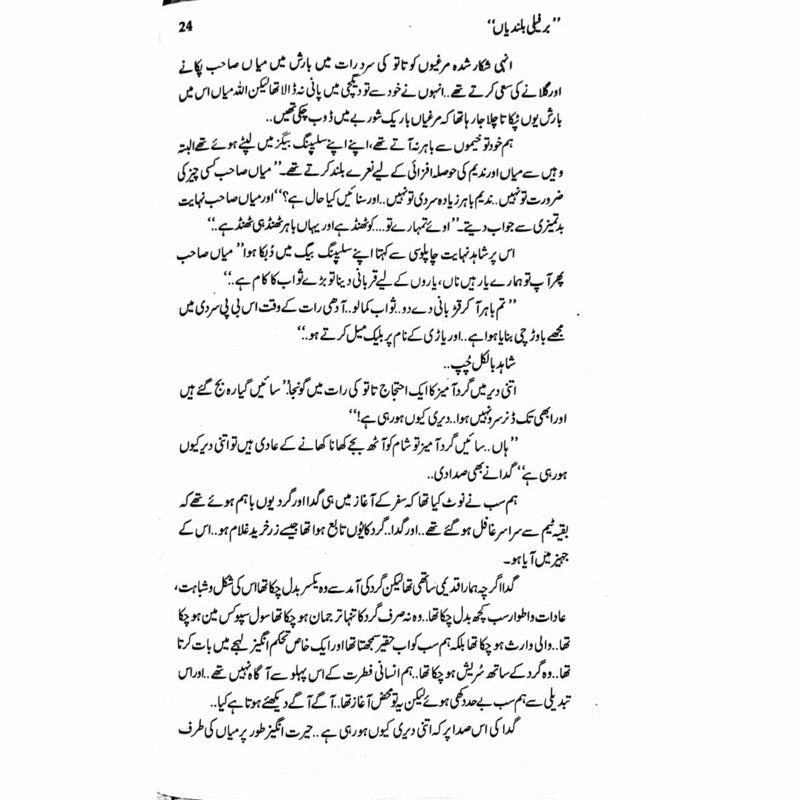 24
”برفیلی بلندیاں“
انہی شکار شدہ مرغیوں کو تاتو کی سرد رات میں بارش میں میاں صاحب پکانے
اور گلانے کی سعی کرتے تھے.. انہوں نے خود سے تو دیگچی میں پانی نہ ڈالا تھا لیکن اللہ میاں اس میں
بارش یوں ٹپکاتا چلا جا رہا تھا کہ مرغیاں باریک شوربے میں ڈوب چکی تھیں..
ہم خود تو خیموں سے باہر نہ آتے تھے، اپنے اپنے سلیپنگ بیگز میں لیٹے ہوئے تھے البتہ
وہیں سے میاں اور ندیم کی حوصلہ افزائی کے لیے نعرے بلند کرتے تھے۔ ”میاں صاحب کسی چیز کی
ضرورت تو نہیں.. ندیم باہر زیادہ سردی تو نہیں.. اور سنائیں کیا حال ہے؟“ اور میاں صاحب نہایت
بدتمیزی سے جواب دیتے۔ ”اوئے تمہارے تو.... کو ٹھنڈ ہے اور یہاں باہر ٹھنڈ ہی ٹھنڈ ہے..“
اس پر شاہد نہایت چاپلوسی سے کہتا اپنے سلیپنگ بیگ میں دُبکا ہوا ”میاں صاحب
پھر آپ تو ہمارے یار ہیں ناں، یاروں کے لیے قربانی دینا تو بڑے ثواب کا کام ہے..“
”تم باہر آ کر قربانی دے دو.. ثواب کما لو.. آدھی رات کے وقت اس بی پی سردی میں
مجھے باورچی بنایا ہوا ہے.. اور یاڑی کے نام پر بلیک میل کرتے ہو..“
شاہد بالکل چُپ..
اتنی دیر میں گرد آمیز کا ایک احتجاج تاتو کی رات میں گونجا: ”سائیں گیارہ بج گئے ہیں
اور ابھی تک ڈنر سرو نہیں ہوا.. دیری کیوں ہو رہی ہے!“
”ہاں.. سائیں گرد آمیز تو شام کو آٹھ بجے کھانا کھانے کے عادی ہیں تو اتنی دیر کیوں
ہو رہی ہے“ گدا نے بھی صدا دی..
ہم سب نے نوٹ کیا تھا کہ سفر کے آغاز میں ہی گدا اور گرد یوں باہم ہوئے تھے کہ
بقیہ ٹیم سے سراسر غافل ہو گئے تھے.. اور گدا.. گرد کا یُوں تابع ہوا تھا جیسے زر خرید غلام ہو.. اس کے
جہیز میں آیا ہو۔
گدا اگرچہ ہمارا قدیمی ساتھی تھا لیکن گرد کی آمد سے وہ یکسر بدل چکا تھا اس کی شکل و شباہت،
عادات و اطوار سب کچھ بدل چکا تھا.. وہ نہ صرف گرد کا تنہا ترجمان ہو چکا تھا سول سپوکس مین ہو چکا
تھا.. والی وارث ہو چکا تھا بلکہ ہم سب کو اب حقیر سمجھتا تھا اور ایک خاص تحکم انگیز لہجے میں بات کرتا
تھا.. وہ گرد کے ساتھ سُریش ہو چکا تھا.. ہم انسانی فطرت کے اس پہلو سے آگاہ نہیں تھے.. اور اس
تبدیلی سے ہم سب بے حد دکھی ہوئے لیکن یہ تو محض آغاز تھا.. آگے آگے دیکھئے ہوتا ہے کیا..
گدا کی اس صدا پر کہ اتنی دیری کیوں ہو رہی ہے.. حیرت انگیز طور پر میاں کی طرف